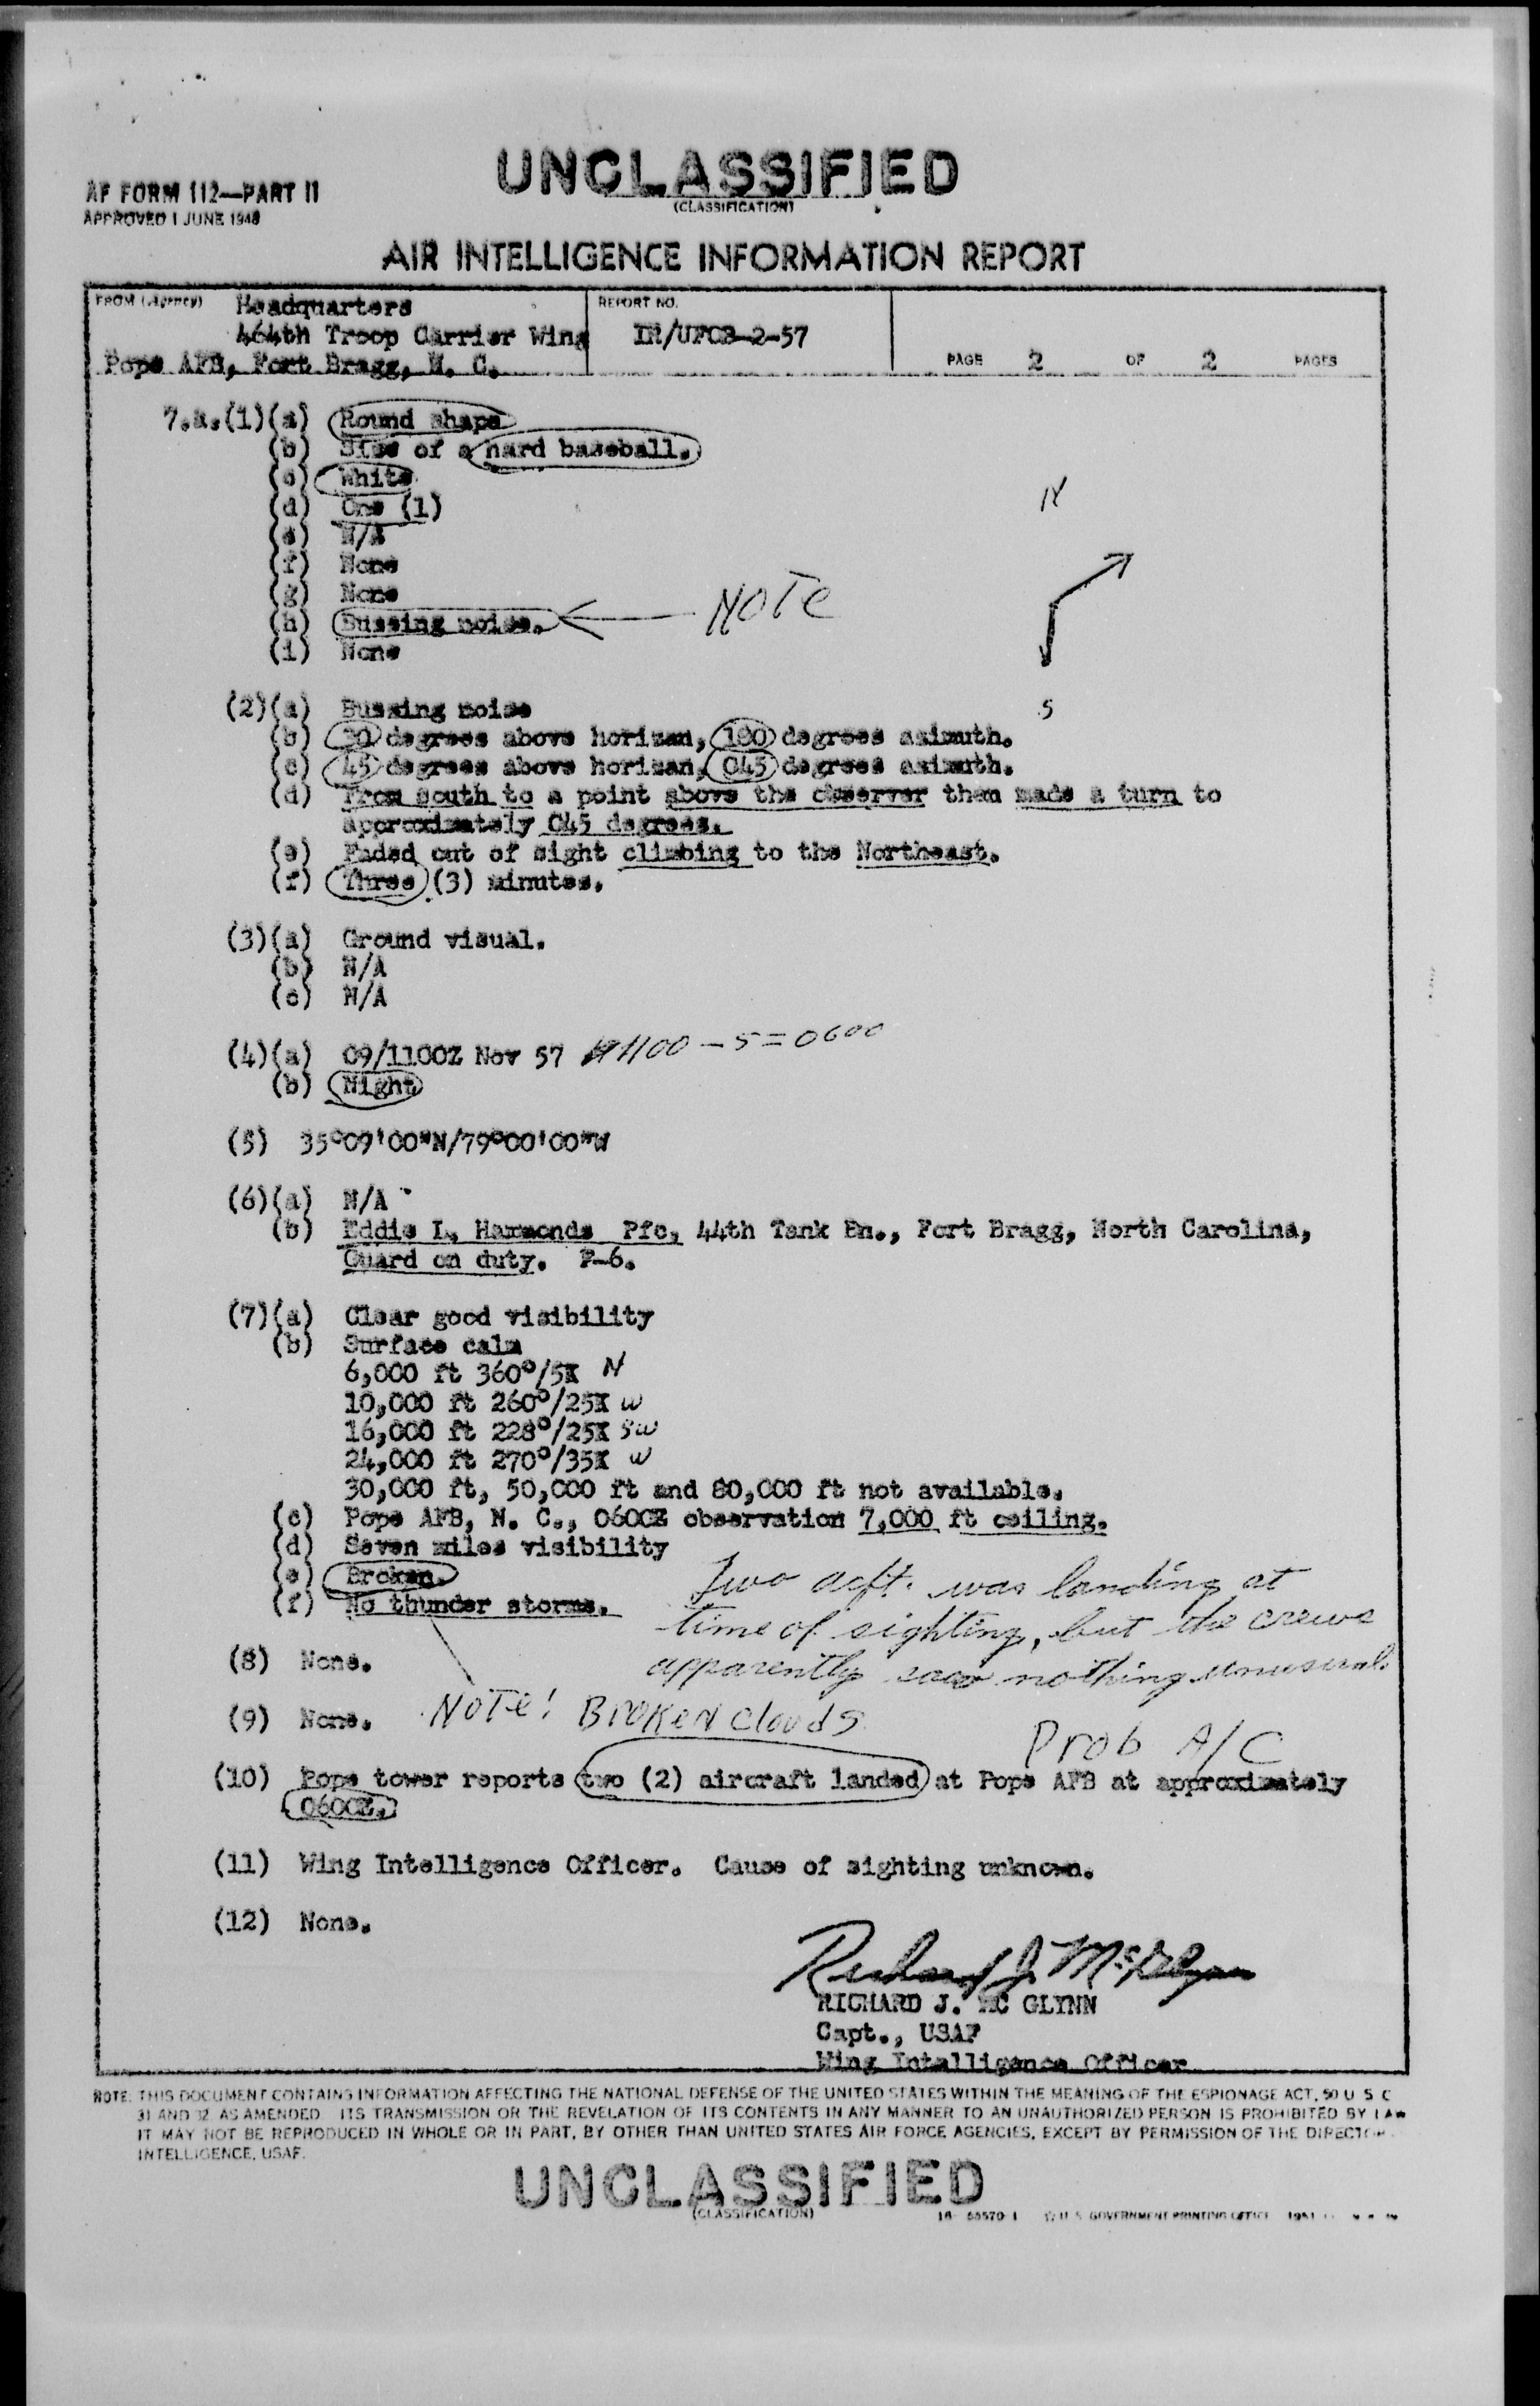 UNCLASSIFIED
(CLASSIFICATION)
AF FORM 112—PART II
APPROVED 1 JUNE 1948
AIR INTELLIGENCE INFORMATION REPORT
FROM (Agency) Headquarters
464th Troop Carrier Wing
Pope AFB, Fort Bragg, N. C.
REPORT NO.
IR/UFOB-2-57
PAGE 2 OF 2 PAGES
7.a.(1)(a) Round shape
(b) Size of a hard baseball.
(c) White
(d) One (1)
(e) N/A
(f) None
(g) None
(h) Bussing noise. NOTE
(i) None
N
S
(2)(a) Bussing noise
(b) 30 degrees above horizan, 180 degrees azimuth.
(c) 45 degrees above horizan, 045 degrees azimuth.
(d) From south to a point above the observer then made a turn to
approximately 045 degrees.
(e) Faded out of sight climbing to the Northeast.
(f) Three (3) minutes.
(3)(a) Ground visual.
(b) N/A
(c) N/A
(4)(a) 09/1100Z Nov 57 1100 - 5 = 0600
(b) Night
(5) 35°09'00"N/79°00'00"W
(6)(a) N/A
(b) Eddie L. Hammonds Pfc, 44th Tank Bn., Fort Bragg, North Carolina,
Guard on duty. F-6.
(7)(a) Clear good visibility
(b) Surface calm
6,000 ft 360°/5K N
10,000 ft 260°/25K W
16,000 ft 228°/25K SW
24,000 ft 270°/35K W
30,000 ft, 50,000 ft and 80,000 ft not available.
(c) Pope AFB, N. C., 0600E observation 7,000 ft ceiling.
(d) Seven miles visibility
(e) Broken.
(f) No thunder storms.
Two acft. was landing at
time of sighting, but the crews
apparently saw nothing unusual.
(8) None.
NOTE! BROKEN clouds
(9) None.
Prob A/C
(10) Pope tower reports two (2) aircraft landed at Pope AFB at approximately
0600E.
(11) Wing Intelligence Officer. Cause of sighting unknown.
(12) None.
Richard J. McGlynn
RICHARD J. MC GLYNN
Capt., USAF
Wing Intelligence Officer
NOTE: THIS DOCUMENT CONTAINS INFORMATION AFFECTING THE NATIONAL DEFENSE OF THE UNITED STATES WITHIN THE MEANING OF THE ESPIONAGE ACT, 50 U S C
31 AND 32 AS AMENDED ITS TRANSMISSION OR THE REVELATION OF ITS CONTENTS IN ANY MANNER TO AN UNAUTHORIZED PERSON IS PROHIBITED BY LAW
IT MAY NOT BE REPRODUCED IN WHOLE OR IN PART, BY OTHER THAN UNITED STATES AIR FORCE AGENCIES, EXCEPT BY PERMISSION OF THE DIRECTOR
INTELLIGENCE, USAF.
UNCLASSIFIED
(CLASSIFICATION)
16—55570-1 U. S. GOVERNMENT PRINTING OFFICE 1951